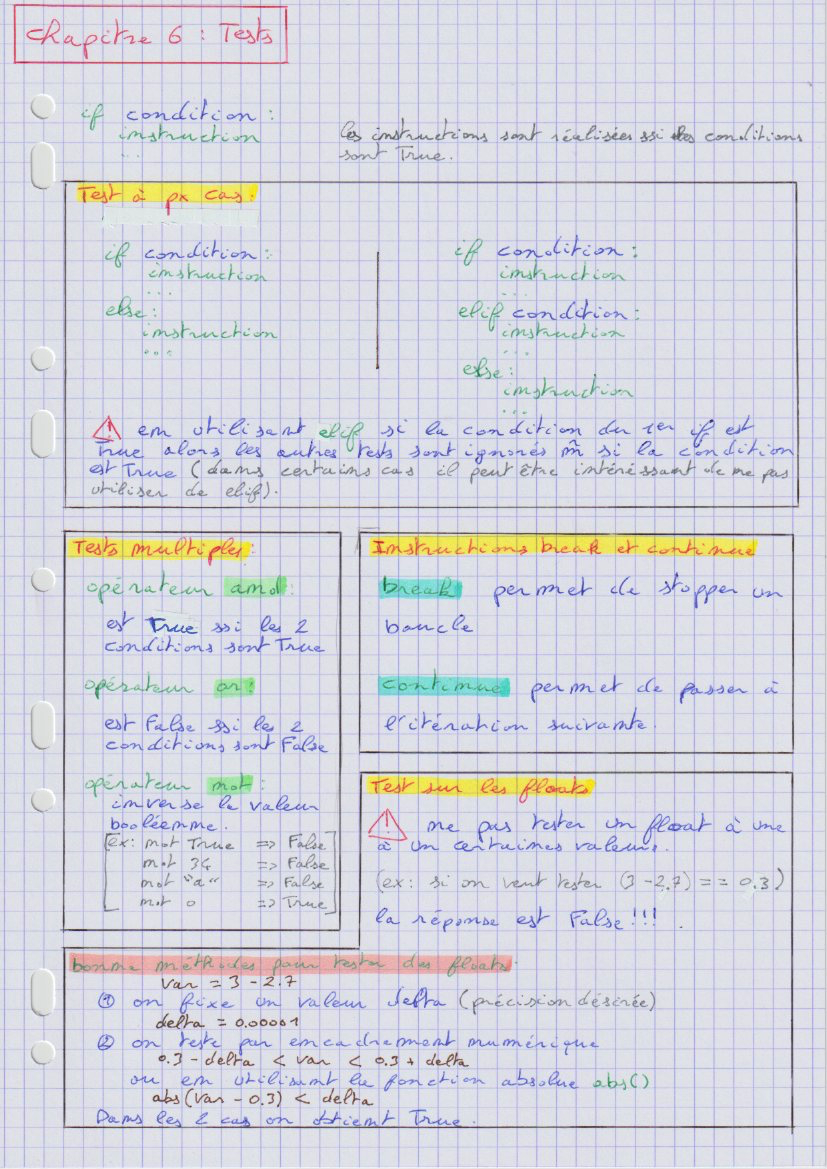 Chapitre 6 : Tests
if condition :
instruction
...
les instructions sont réalisées ssi les conditions
sont True.
Test à px cas :
if condition :
instruction
...
else :
instruction
...
if condition :
instruction
...
elif condition :
instruction
...
else :
instruction
...
⚠ en utilisant elif si la condition du 1er if est
True alors les autres tests sont ignorés m̃ si la condition
est True (dans certains cas il peut être intéressant de ne pas
utiliser de elif).
Tests multiples :
opérateur and :
est True ssi les 2
conditions sont True
opérateur or :
est False ssi les 2
conditions sont False
opérateur not :
inverse la valeur
booléenne.
[ex : not True => False]
not 34 => False
not "a" => False
not 0 => True
Instructions break et continue
break permet de stopper un
boucle
continue permet de passer à
l'itération suivante.
Test sur les floats
⚠ ne pas tester un float à une
à un certaines valeurs.
(ex : si on veut tester (3 - 2.7) == 0.3)
la réponse est False!!! .
bonne méthodes pour tester des floats.
var = 3 - 2.7
① on fixe un valeur delta (précision désirée)
delta = 0.00001
② on teste par encadrement numérique
0.3 - delta < var < 0.3 + delta
ou en utilisant la fonction absolue abs()
abs(var - 0.3) < delta
Dans les 2 cas on obtient True.